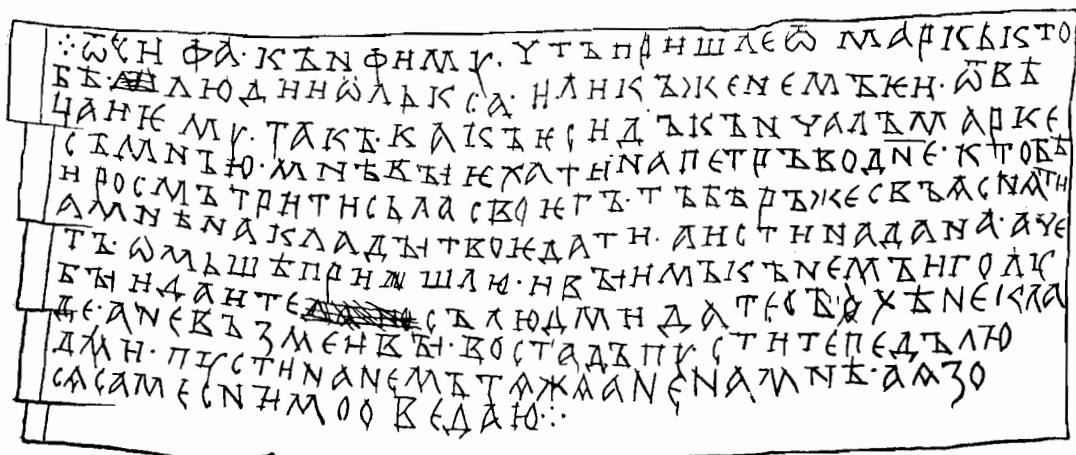 ⁘ѾСИФА·КЪНФИМꙊ·ЧТЪПРИШЛЕѾМАРКЬКТО
БѢ·ЛЮДИИѠЛЬКСА·ИЛИКЪЖЕНЕМЪѤИ·ѾВѢ
ЦАИѤМꙊ·ТАКЪ·КАКЪѤСИДЪКЪНЧАЛЪМАРКЕ
СЪМНЪЮ·МНѢВЪІѤХАТИНАПЕТРЪВОДНЕ·КТОБѢ
ИРОСМЪТРИТИСЬЛАСВОѤГЪ·ТЪБѢРЪЖЕСВЪѦСНАТИ
АМНѢНАКЛАДЪІТВОѤДАТИ·АИСТИНАДАНА·АЧЕ
ТЪ·ѠМЬШѢПРИШЛЮ·ИВЪІИМЪКЪНЕМЪИГОЛꙊ
БЪІИДАИТЕСЪЛЮДМИДАТЕСЪОХѢНЕКЛА
ДЕ·АНЕВЪЗМЕИВЪІ·ВОСТАДЪПꙊСТИТЕПЕДЪЛЮ
ДМИ·ПꙊСТИНАНЕМЪТѦЖѦАНЕНАМНѢ·АѦЗО
СѦСАМЕСНИМООВЕДАЮ⁘